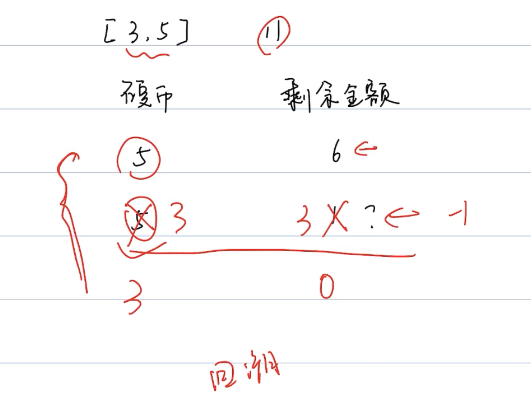 [3,5] 11
硬币 剩余金额
5 6 ←
5 3 3 1 ? ← -1
3 0
回溯